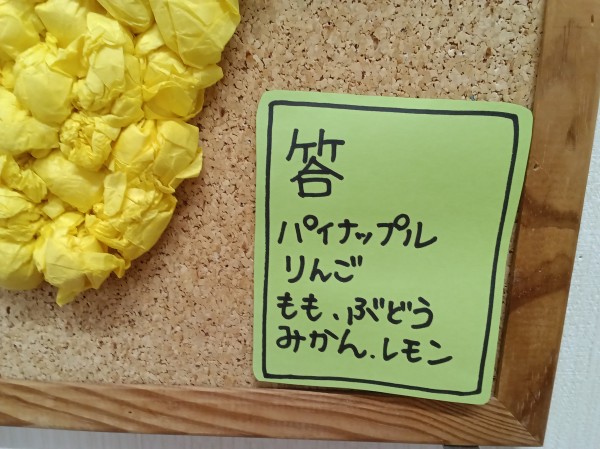 答
パイナップル
りんご
もも、ぶどう
みかん、レモン